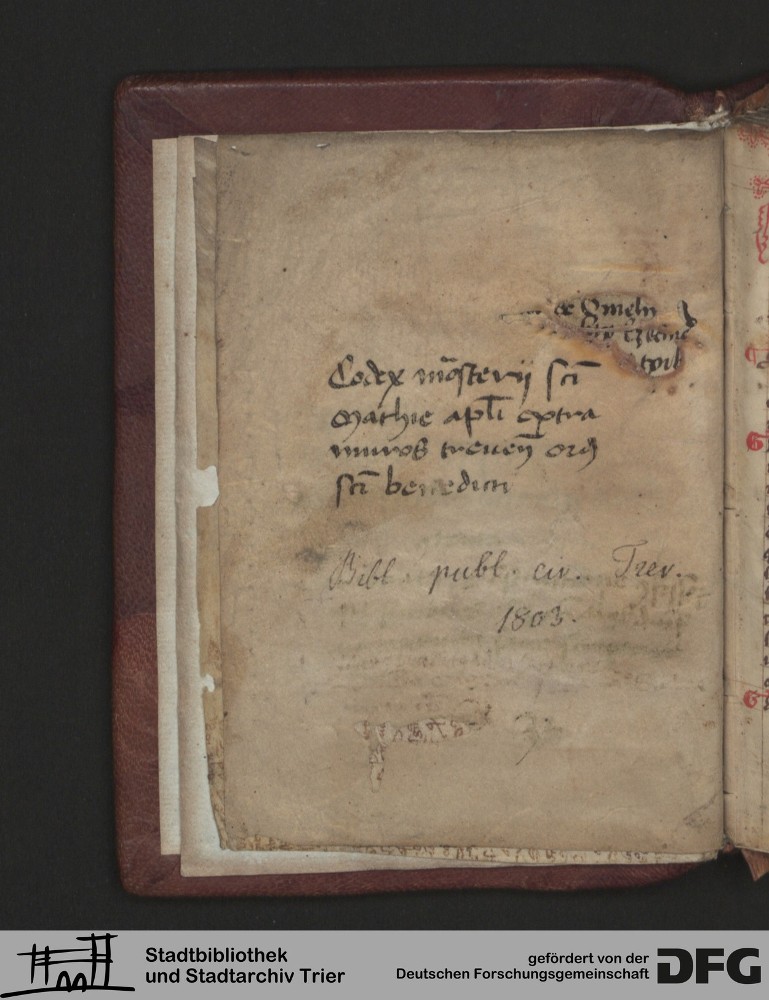 Codex mo̅sterij sci̅
Mathie apl̅i extra
muros treuen̅ ord
sci̅ benedicti
Bibl. publ. civ. Trev.
1803.
Stadtbibliothek
und Stadtarchiv Trier
gefördert von der
Deutschen Forschungsgemeinschaft
DFG